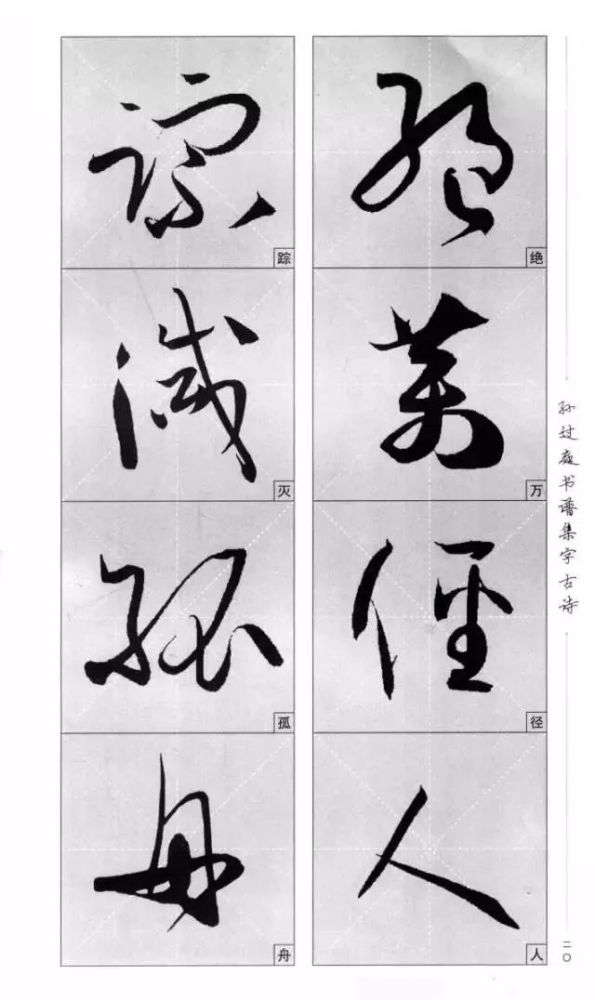 孙过庭书谱集字古诗
二〇
絕萬徑人
绝
万
径
人
踪滅孤舟
踪
灭
孤
舟